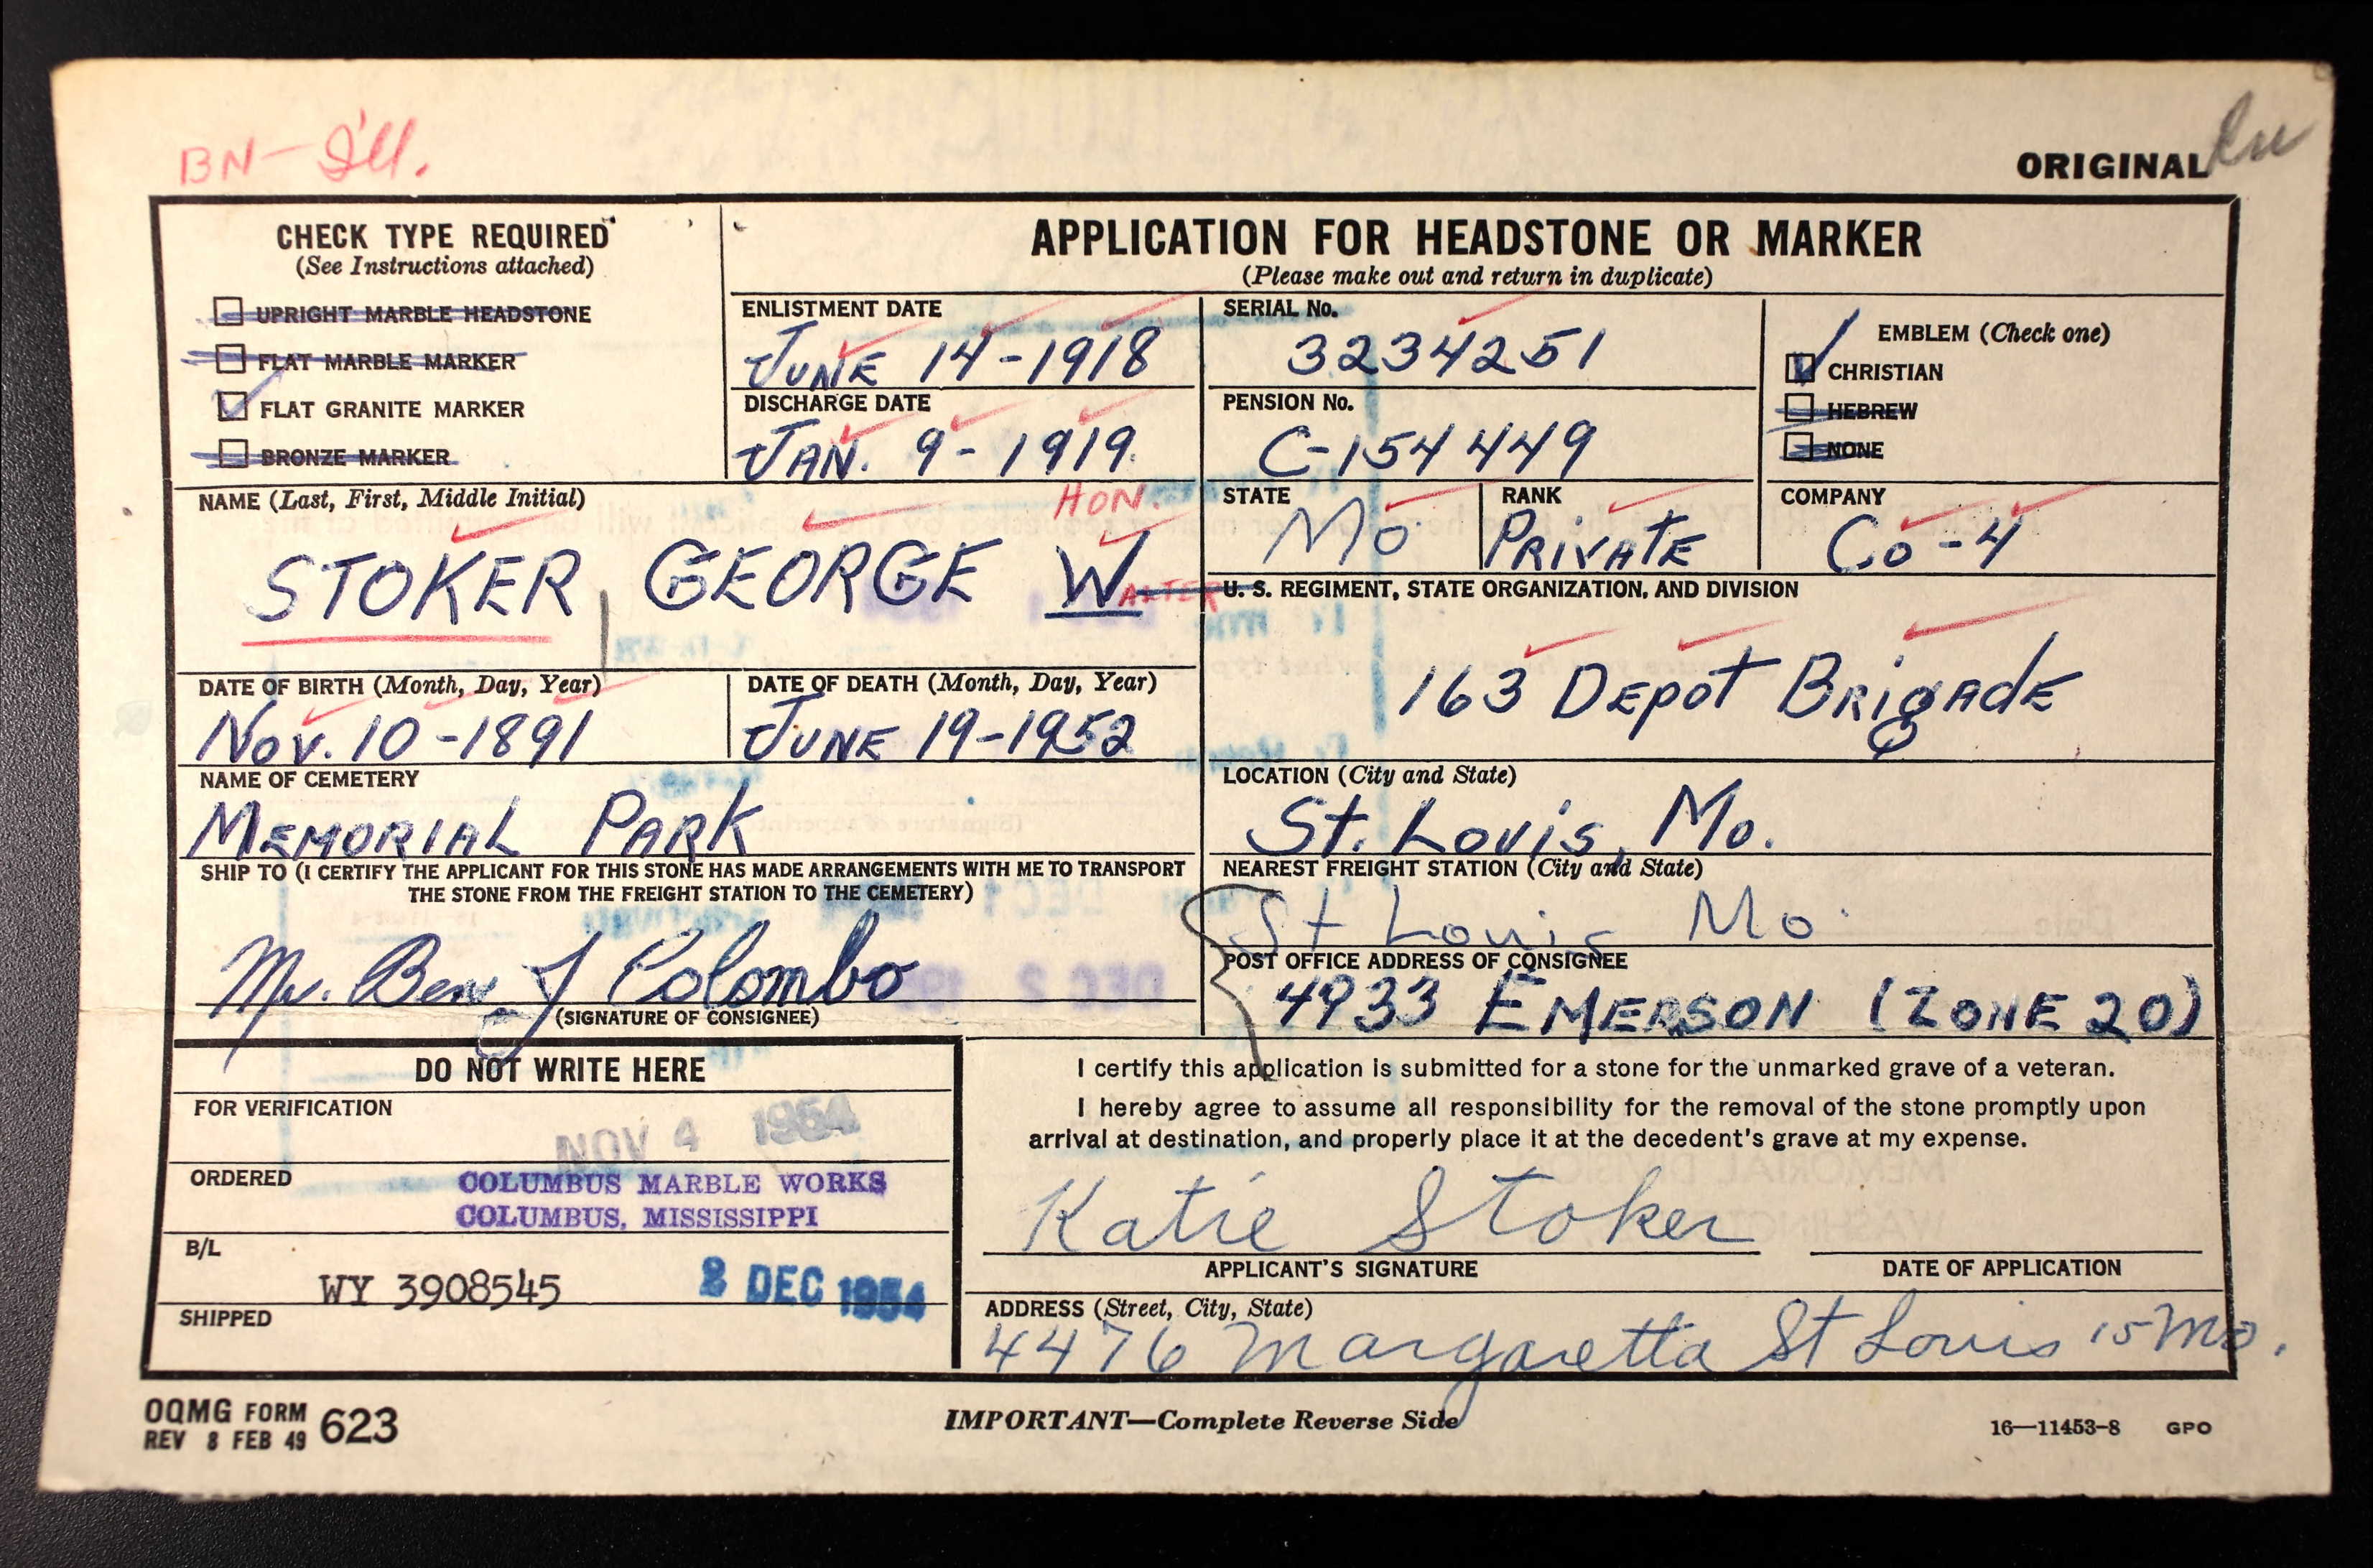 BN - Ill.
ORIGINAL
CHECK TYPE REQUIRED
(See Instructions attached)
UPRIGHT MARBLE HEADSTONE
FLAT MARBLE MARKER
FLAT GRANITE MARKER
BRONZE MARKER
APPLICATION FOR HEADSTONE OR MARKER
(Please make out and return in duplicate)
ENLISTMENT DATE
JUNE 14-1918
DISCHARGE DATE
JAN. 9-1919
SERIAL No.
3234251
PENSION No.
C-154449
EMBLEM (Check one)
CHRISTIAN
HEBREW
NONE
NAME (Last, First, Middle Initial)
HON.
STOKER, GEORGE WALTER
STATE
Mo
RANK
PRIVATE
COMPANY
Co-4
U. S. REGIMENT, STATE ORGANIZATION, AND DIVISION
163 DEPOT BRIGADE
DATE OF BIRTH (Month, Day, Year)
Nov. 10-1891
DATE OF DEATH (Month, Day, Year)
JUNE 19-1952
NAME OF CEMETERY
MEMORIAL PARK
LOCATION (City and State)
St. Louis, Mo.
SHIP TO (I CERTIFY THE APPLICANT FOR THIS STONE HAS MADE ARRANGEMENTS WITH ME TO TRANSPORT
THE STONE FROM THE FREIGHT STATION TO THE CEMETERY)
Mr. Ben J Colombo
(SIGNATURE OF CONSIGNEE)
NEAREST FREIGHT STATION (City and State)
St Louis Mo.
POST OFFICE ADDRESS OF CONSIGNEE
4933 EMERSON (ZONE 20)
DO NOT WRITE HERE
FOR VERIFICATION
NOV 4 1954
ORDERED
COLUMBUS MARBLE WORKS
COLUMBUS, MISSISSIPPI
B/L
WY 3908545
2 DEC 1954
SHIPPED
I certify this application is submitted for a stone for the unmarked grave of a veteran.
I hereby agree to assume all responsibility for the removal of the stone promptly upon
arrival at destination, and properly place it at the decedent's grave at my expense.
Katie Stoker
APPLICANT'S SIGNATURE
DATE OF APPLICATION
ADDRESS (Street, City, State)
4476 Margaretta St Louis 15 Mo.
OQMG FORM 623
REV 8 FEB 49
IMPORTANT—Complete Reverse Side
16—11453-8 GPO